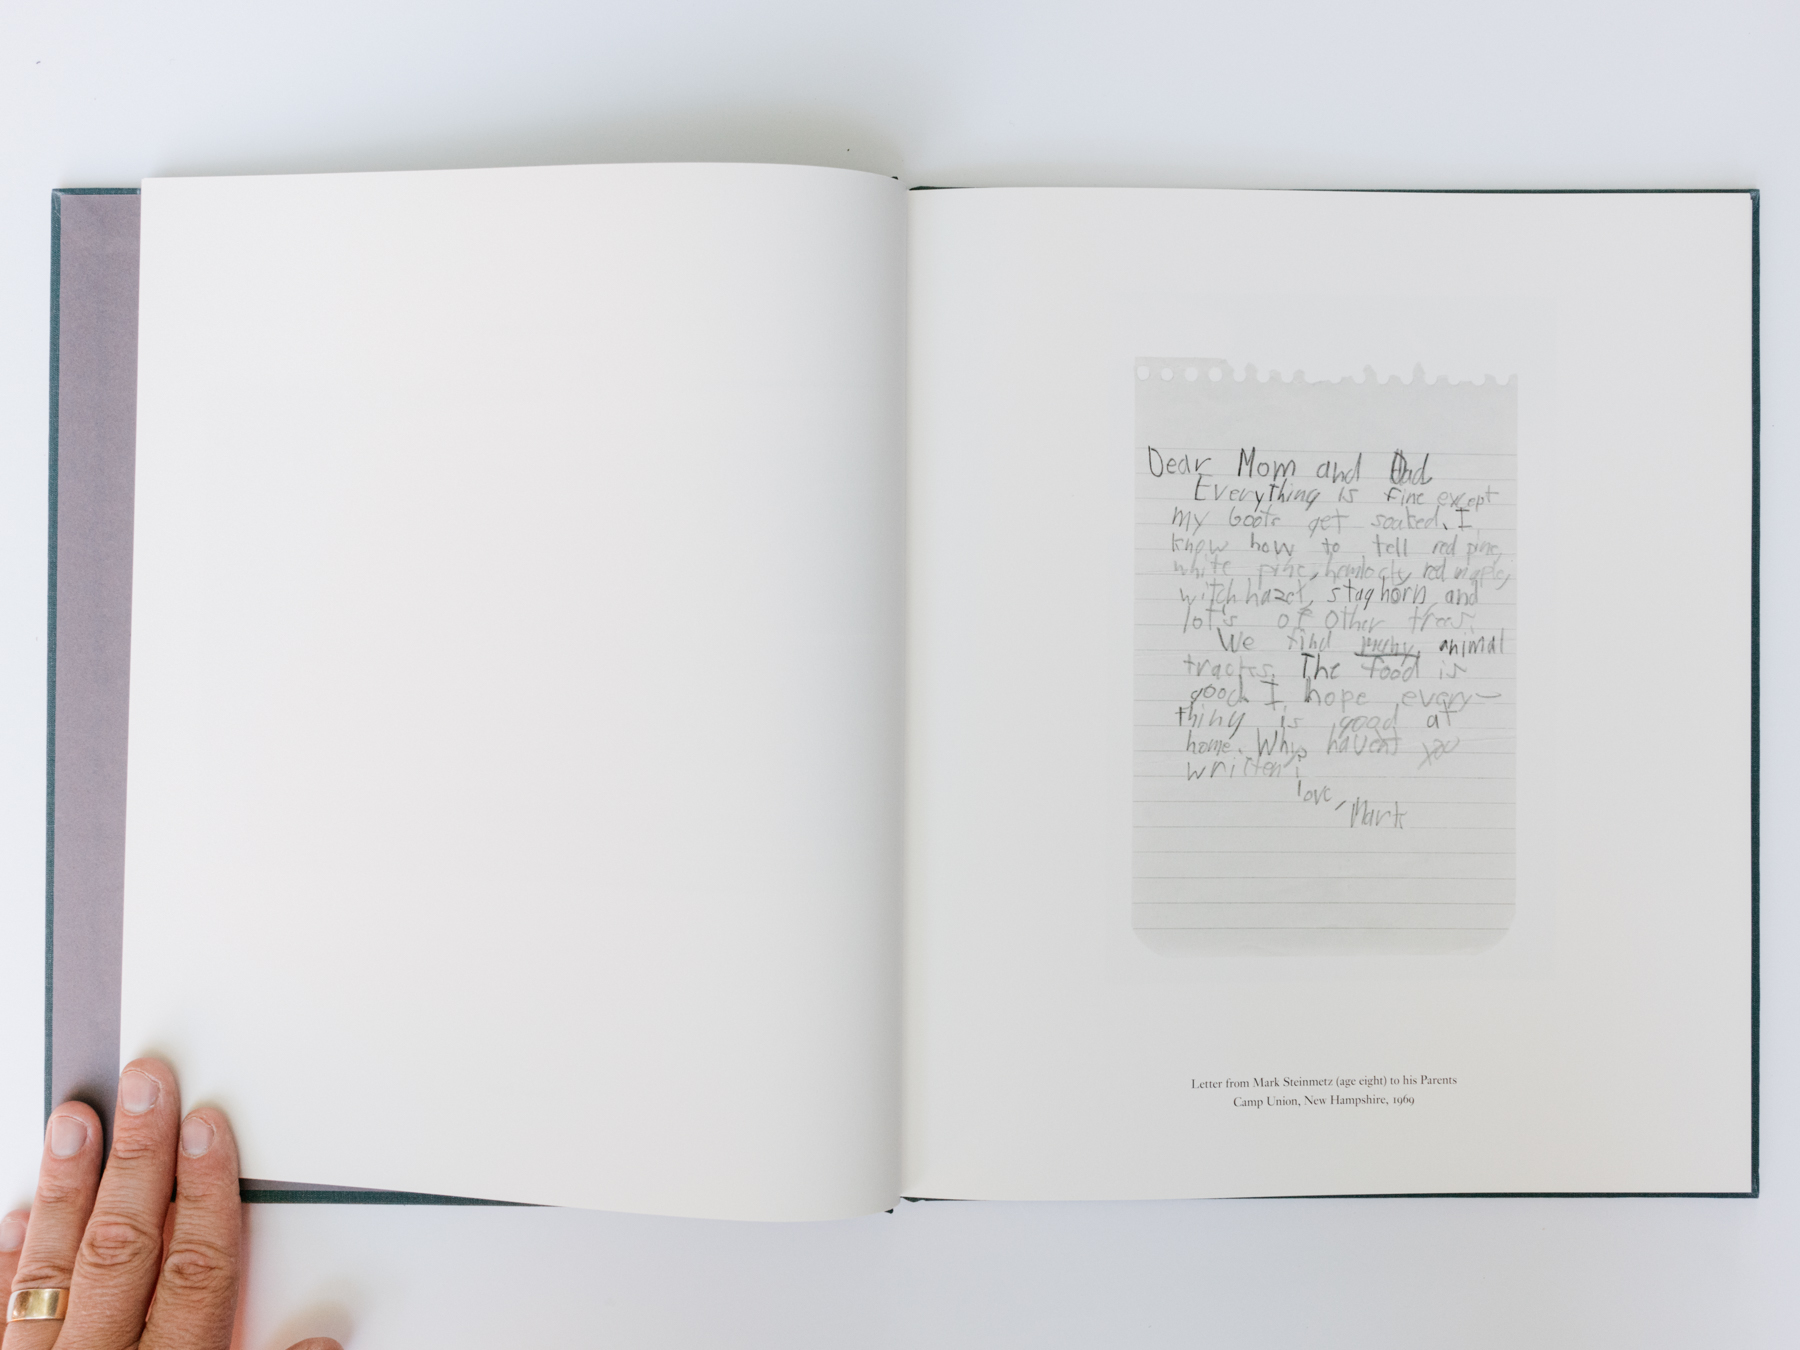 Dear Mom and Dad
Everything is fine except
my boots get soaked. I
know how to tell red pine,
white pine, hemlock, red maple,
witch hazel, staghorn and
lot's of other trees.
We find many animal
tracks. The food is
good. I hope every-
thing is good at
home. Why havent you
written?
love,
Mark
Letter from Mark Steinmetz (age eight) to his Parents
Camp Union, New Hampshire, 1969